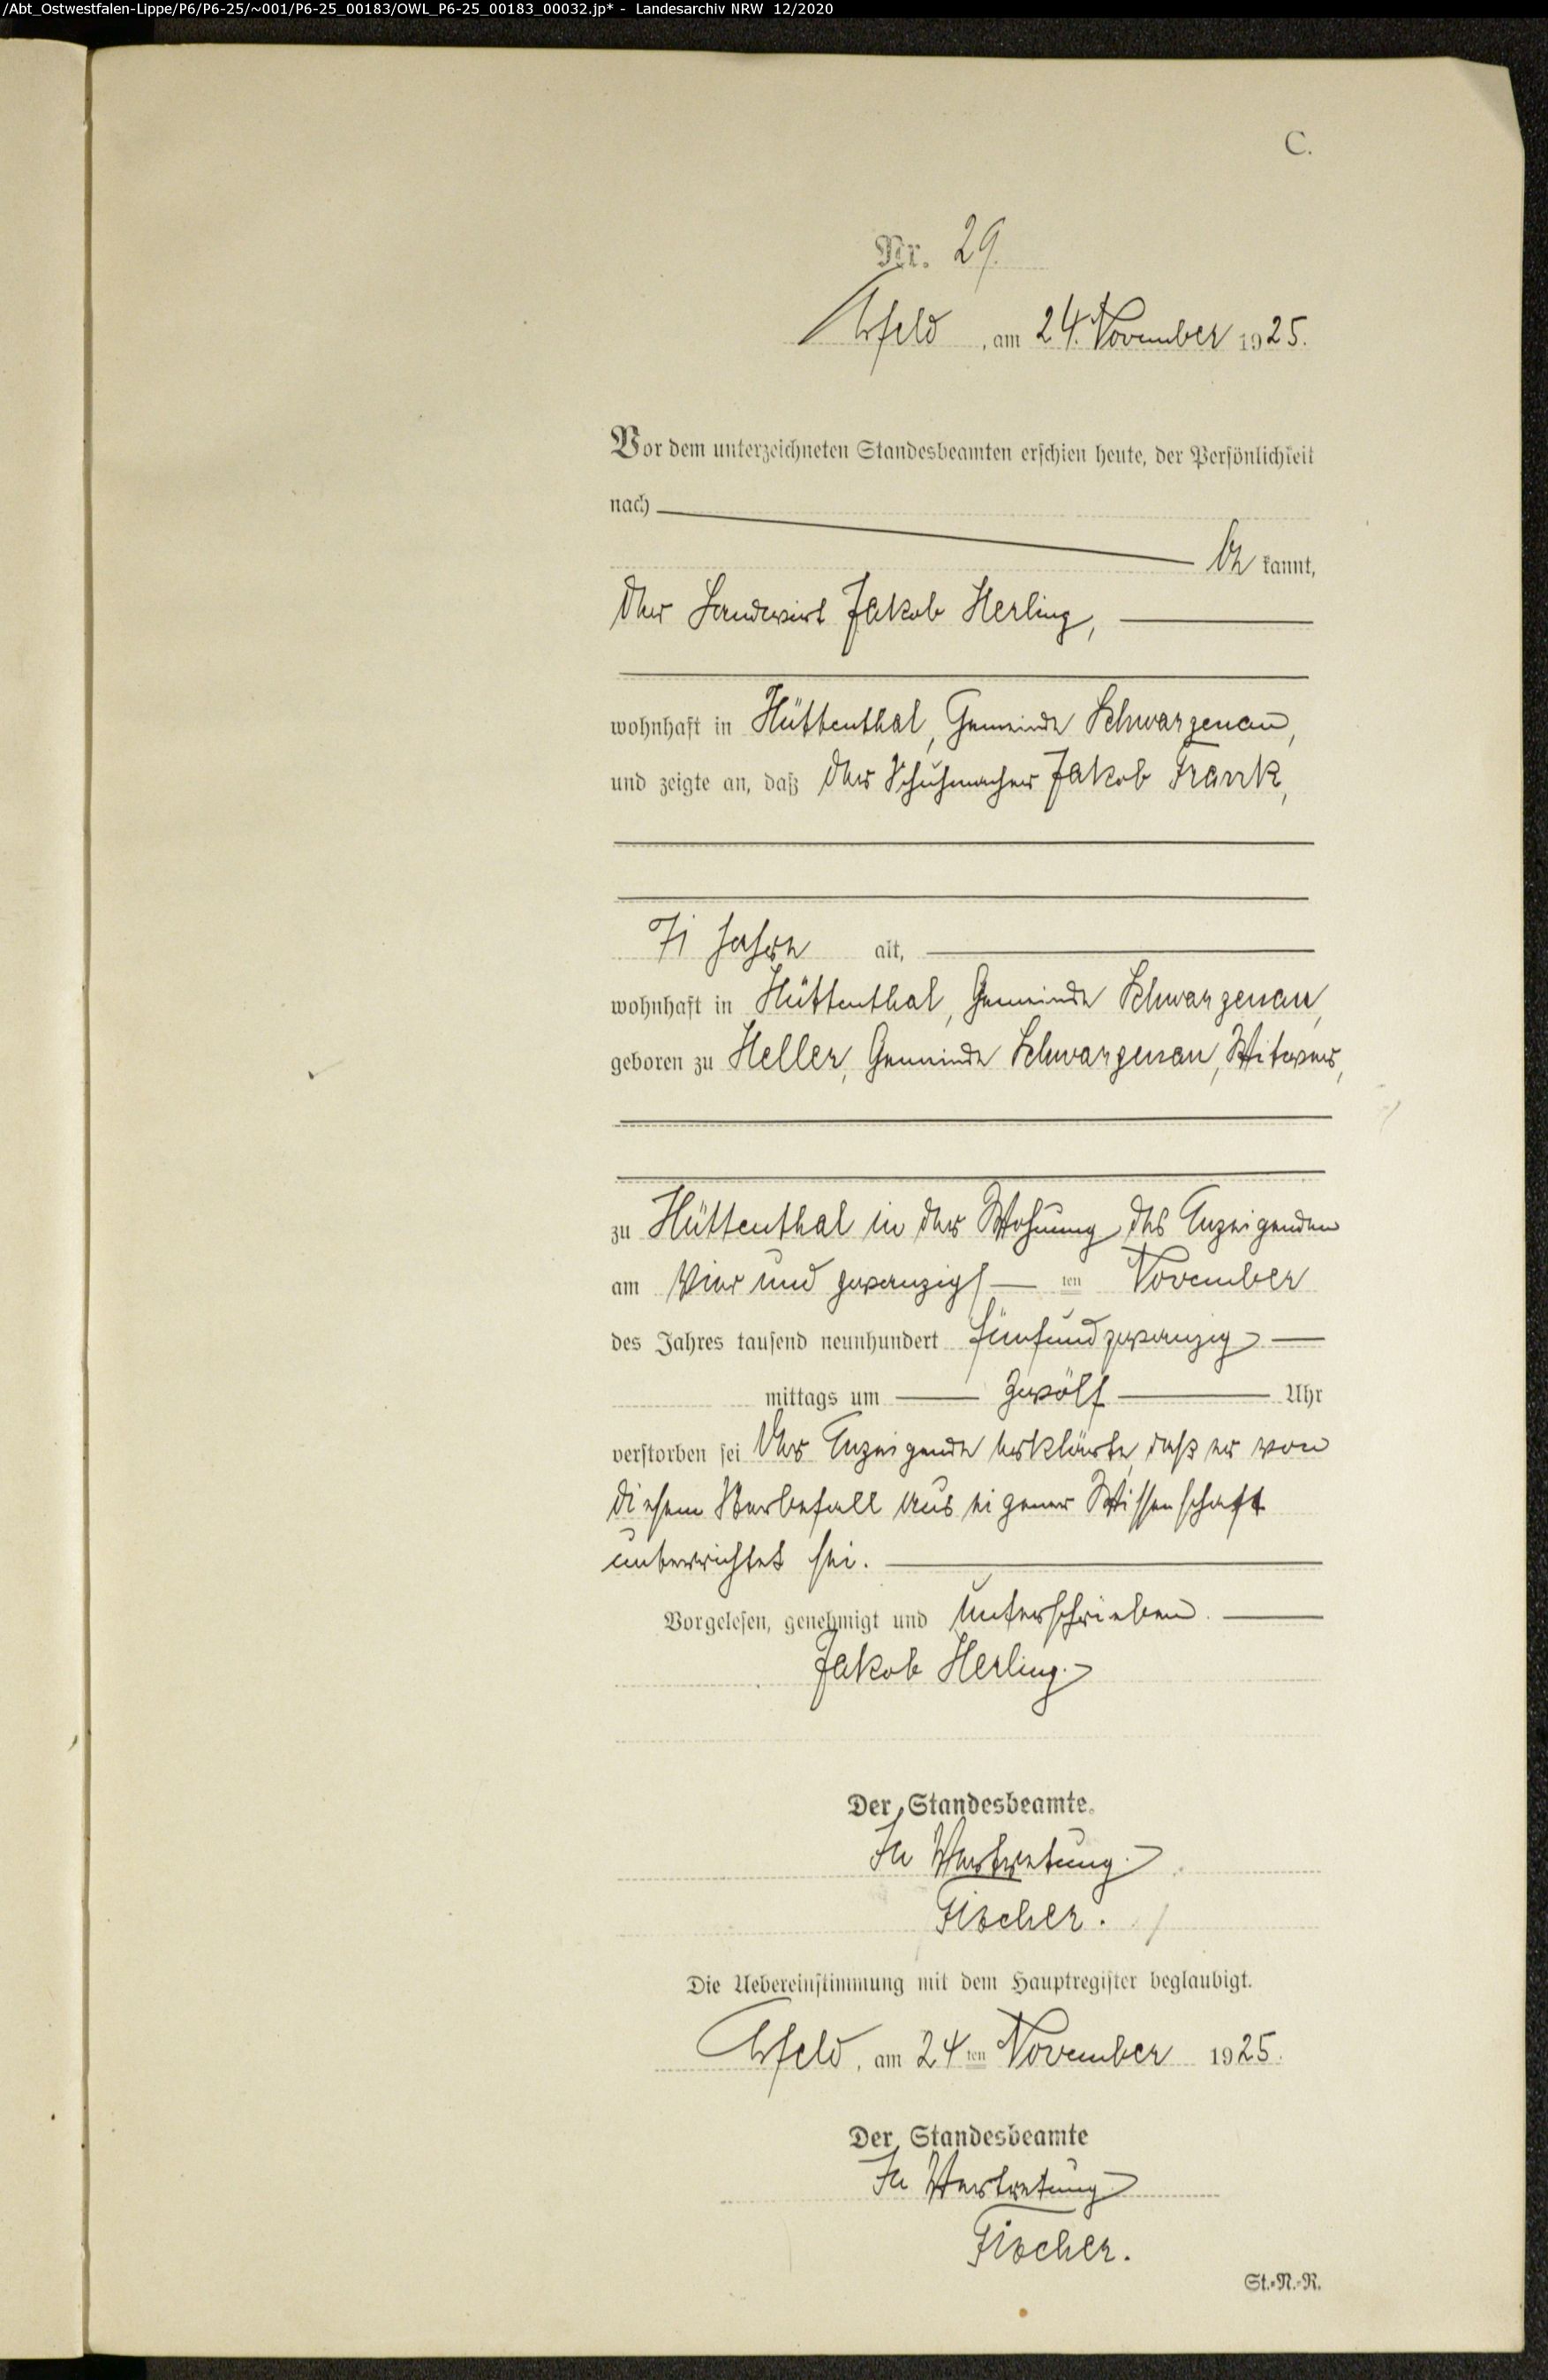 /Abt_Ostwestfalen-Lippe/P6/P6-25/~001/P6-25_00183/OWL_P6-25_00183_00032.jp* - Landesarchiv NRW 12/2020
C.
Nr. 29.
Arfeld, am 24. November 1925.
Vor dem unterzeichneten Standesbeamten erschien heute, der Persönlichkeit
nach
be kannt,
der Landwirt Jakob Herling,
wohnhaft in Hüttenthal, Gemeinde Schwarzenau,
und zeigte an, daß der Schuhmacher Jakob Frank,
71 Jahre alt,
wohnhaft in Hüttenthal, Gemeinde Schwarzenau,
geboren zu Heller, Gemeinde Schwarzenau, Witwer,
zu Hüttenthal in der Wohnung des Anzeigenden
am vier und zwanzigs ten November
des Jahres tausend neunhundert fünfundzwanzig
mittags um zwölf Uhr
verstorben sei Der Anzeigende erklärte, daß er von
diesem Sterbefall aus eigener Wissenschaft
unterrichtet sei.
Vorgelesen, genehmigt und unterschrieben.
Jakob Herling.
Der Standesbeamte.
In Vertretung.
Fischer.
Die Uebereinstimmung mit dem Hauptregister beglaubigt.
Arfeld, am 24 ten November 1925.
Der Standesbeamte
In Vertretung
Fischer.
St.-N.-R.